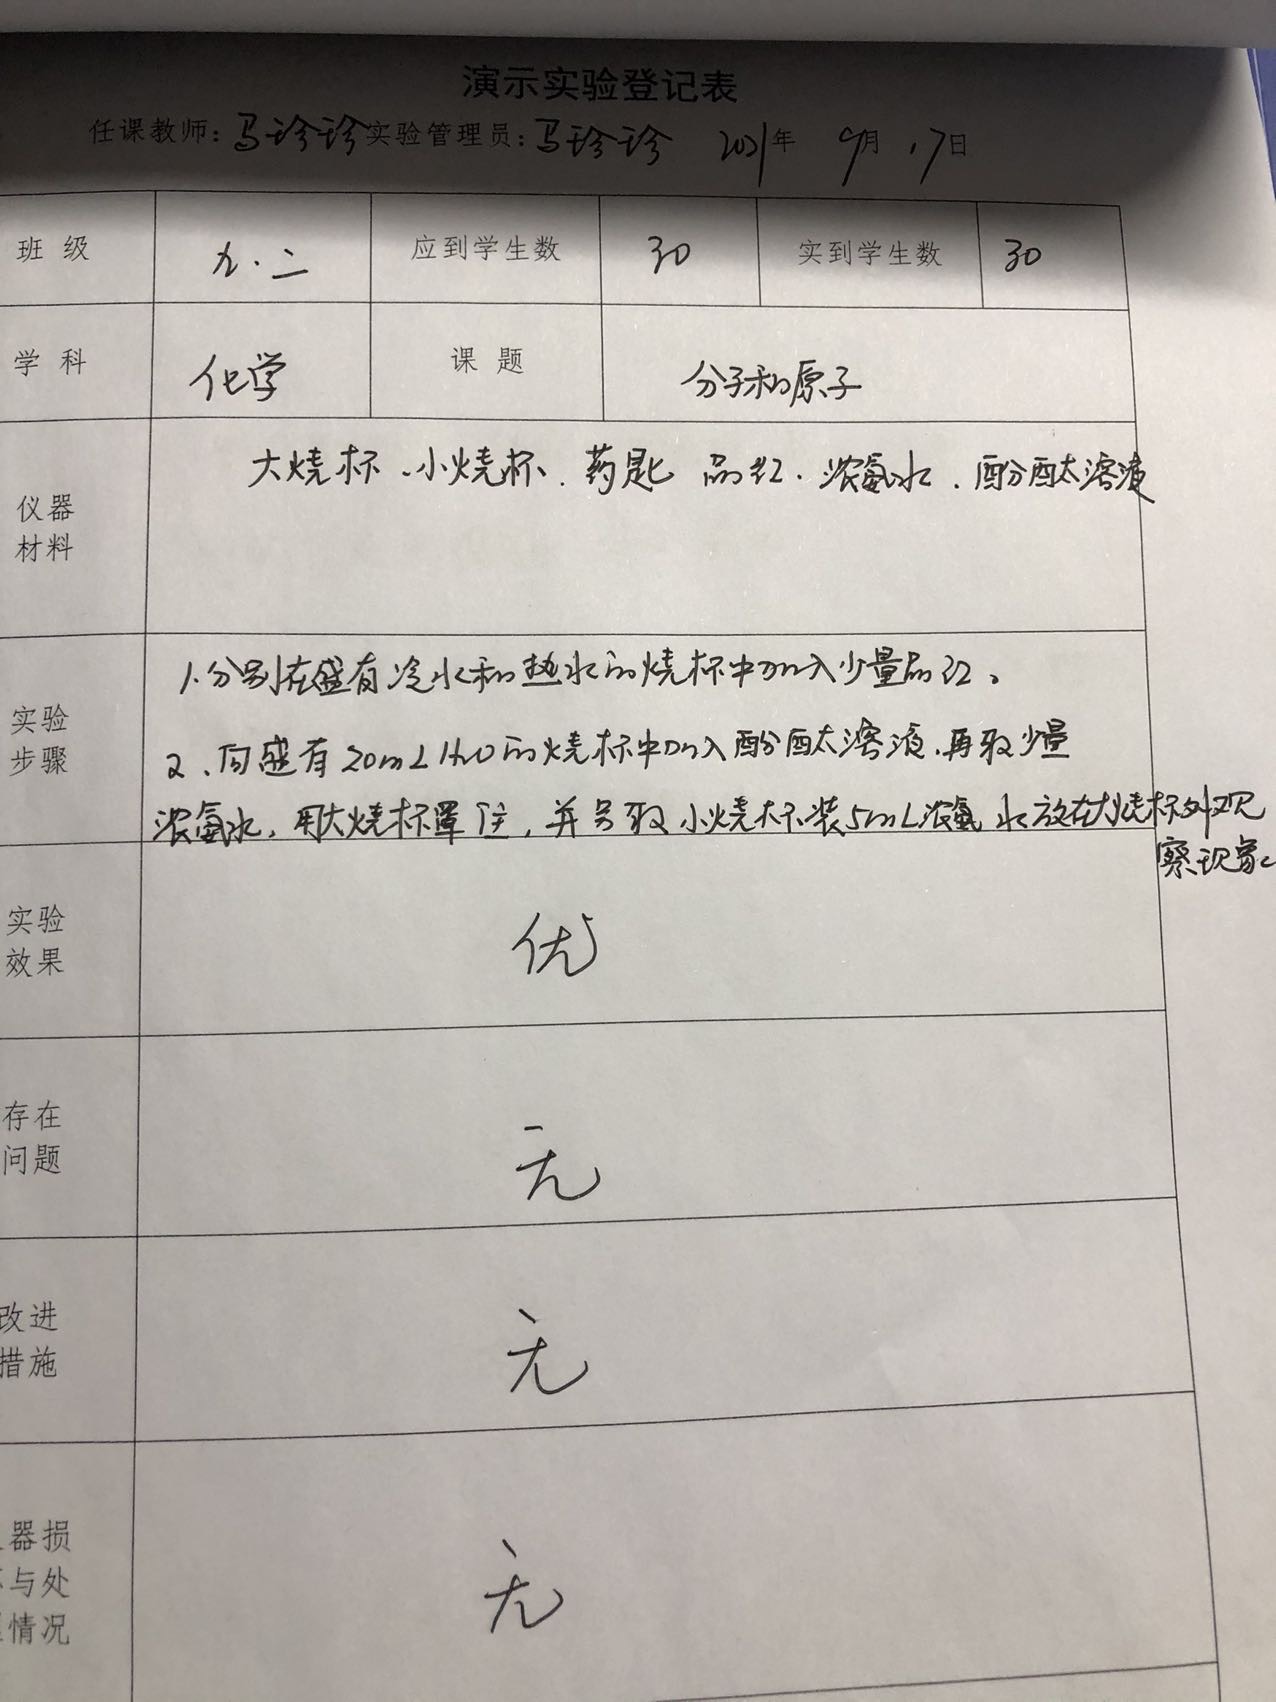 演示实验登记表
任课教师：马珍珍 实验管理员：马珍珍 2021年 9月 17日
班 级 九.二 应到学生数 30 实到学生数 30
学 科 化学 课 题 分子和原子
仪器
材料
大烧杯、小烧杯、药匙 品红、浓氨水、酚酞溶液
实验
步骤
1.分别在盛有冷水和热水的烧杯中加入少量品红。
2、向盛有20mL H2O的烧杯中加入酚酞溶液，再取少量
浓氨水，用大烧杯罩住，并另取小烧杯装5mL浓氨水放在大烧杯外观
察现象
实验
效果
优
存在
问题
无
改进
措施
无
器损
与处
情况
无